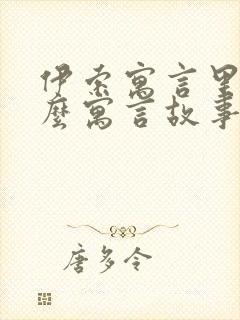 伊索寓言里
麼寓言故事
唐多令